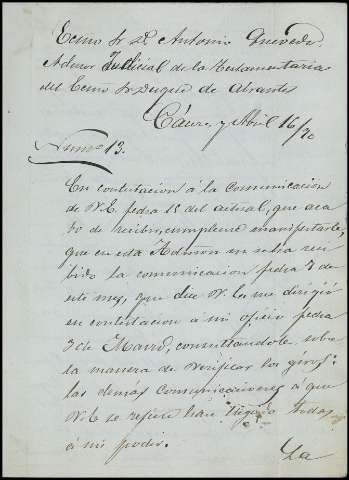 Ecmo Sr D. Antonio Quevedo.
Admor Judicial de la Testamentaria
del Ecmo Sr Duque de Abrantes
Cáceres y Abril 16/70
Numo 13.
En contestacion á la comunicacion
de V.E. fecha 15 del actual, que aca
bo de recibir, cumpleme manifestarle,
que en esta Admon no se ha reci
bido la comunicacion fecha 7 de
este mes, que dice V.E. me dirigió
en contestacion á mi oficio fecha
3 de Marzo, consultandole sobre
la manera de verificar los giros:
las demás comunicaciones á que
V.E. se refiere han llegado todas
á mi poder.
La